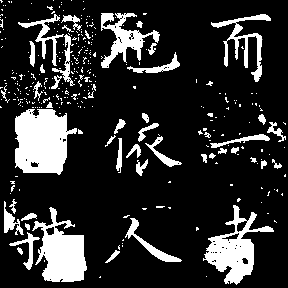 而一者
也依人
而